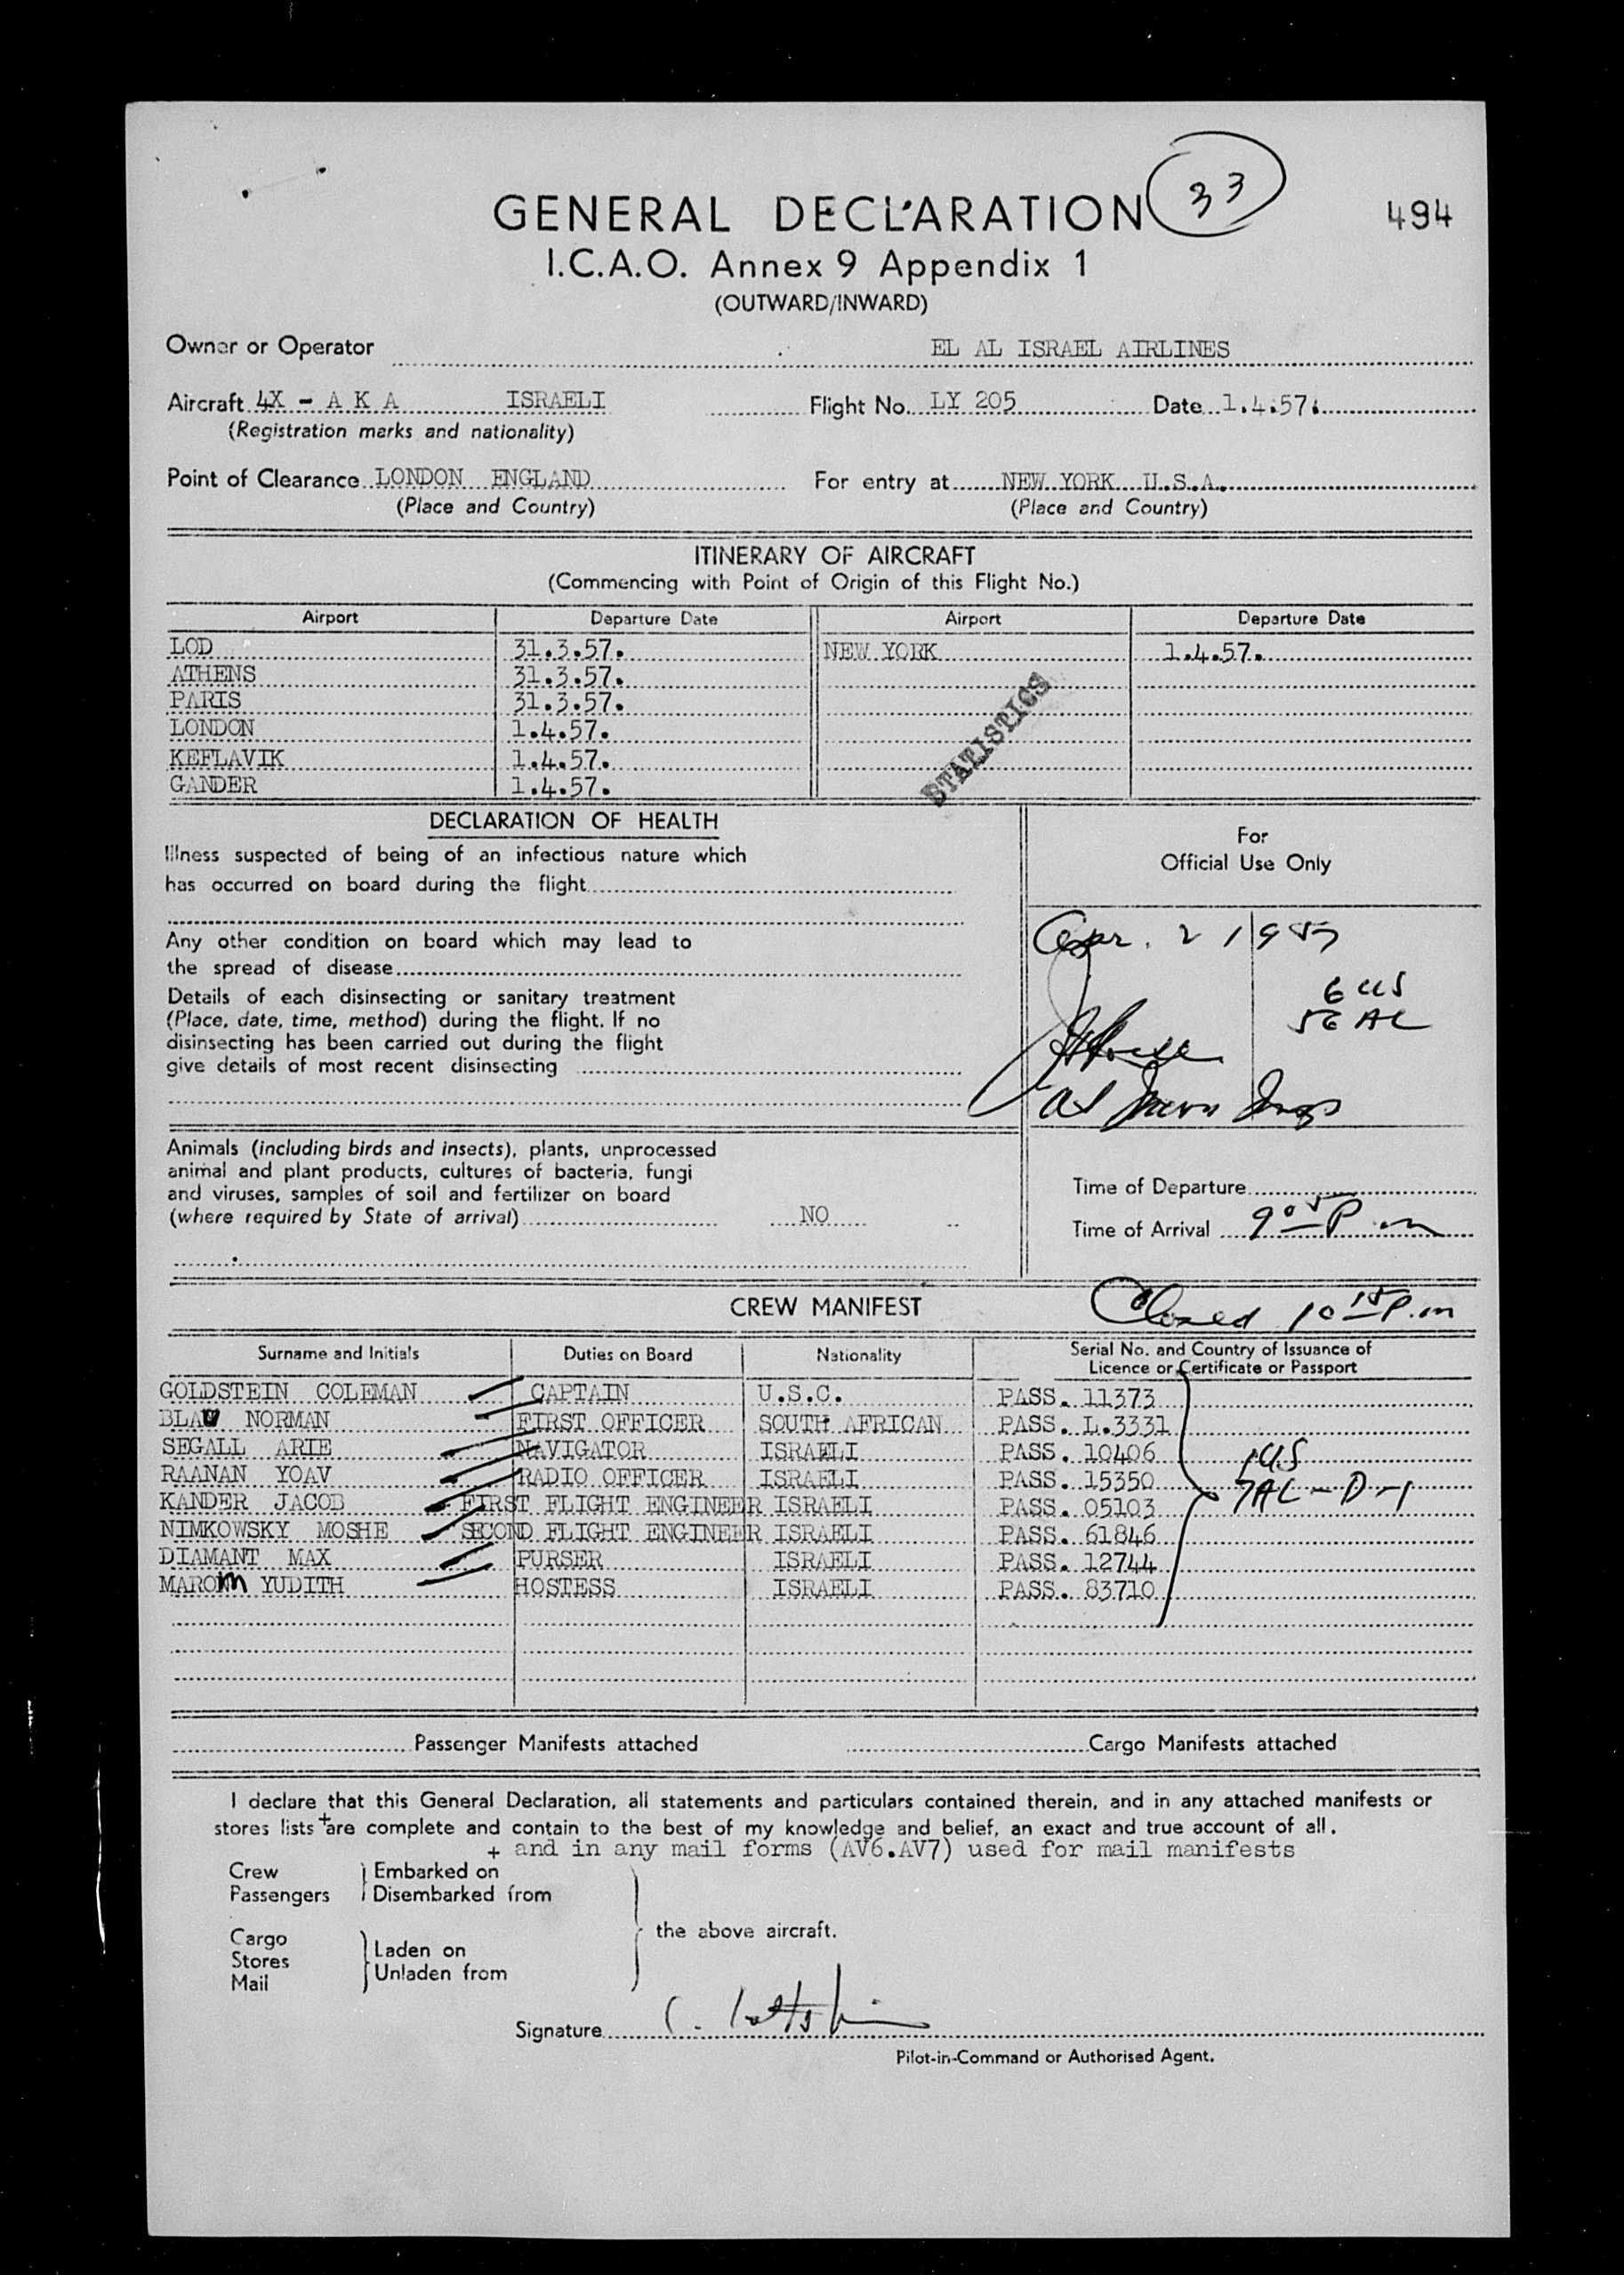 33
GENERAL DECLARATION
494
I.C.A.O. Annex 9 Appendix 1
(OUTWARD/INWARD)
Owner or Operator EL AL ISRAEL AIRLINES
Aircraft 4X - A K A ISRAELI Flight No. LY 205 Date 1.4.57.
(Registration marks and nationality)
Point of Clearance LONDON ENGLAND For entry at NEW YORK U.S.A.
(Place and Country) (Place and Country)
ITINERARY OF AIRCRAFT
(Commencing with Point of Origin of this Flight No.)
Airport Departure Date Airport Departure Date
LOD 31.3.57. NEW YORK 1.4.57.
ATHENS 31.3.57.
PARIS 31.3.57.
LONDON 1.4.57.
KEFLAVIK 1.4.57.
GANDER 1.4.57.
STATISTICS
DECLARATION OF HEALTH
Illness suspected of being of an infectious nature which
has occurred on board during the flight
Any other condition on board which may lead to
the spread of disease
Details of each disinsecting or sanitary treatment
(Place, date, time, method) during the flight. If no
disinsecting has been carried out during the flight
give details of most recent disinsecting
For
Official Use Only
Apr. 2 1957
6 US
56 AL
Animals (including birds and insects), plants, unprocessed
animal and plant products, cultures of bacteria, fungi
and viruses, samples of soil and fertilizer on board
(where required by State of arrival) NO
Time of Departure
Time of Arrival 9 05 P.m
CREW MANIFEST
Closed 10 15 P.m
Surname and Initials Duties on Board Nationality Serial No. and Country of Issuance of
Licence or Certificate or Passport
GOLDSTEIN COLEMAN CAPTAIN U.S.C. PASS. 11373
BLAU NORMAN FIRST OFFICER SOUTH AFRICAN PASS. L.3331
SEGALL ARIE NAVIGATOR ISRAELI PASS. 10406
RAANAN YOAV RADIO OFFICER ISRAELI PASS. 15350
KANDER JACOB FIRST FLIGHT ENGINEER ISRAELI PASS. 05103
NIMKOWSKY MOSHE SECOND FLIGHT ENGINEER ISRAELI PASS. 61846
DIAMANT MAX PURSER ISRAELI PASS. 12744
MAROM YUDITH HOSTESS ISRAELI PASS. 83710
1 US
7 AL - D-1
Passenger Manifests attached Cargo Manifests attached
I declare that this General Declaration, all statements and particulars contained therein, and in any attached manifests or
stores lists + are complete and contain to the best of my knowledge and belief, an exact and true account of all.
+ and in any mail forms (AV6.AV7) used for mail manifests
Crew Embarked on
Passengers Disembarked from
the above aircraft.
Cargo
Stores Laden on
Mail Unladen from
Signature
Pilot-in-Command or Authorised Agent.